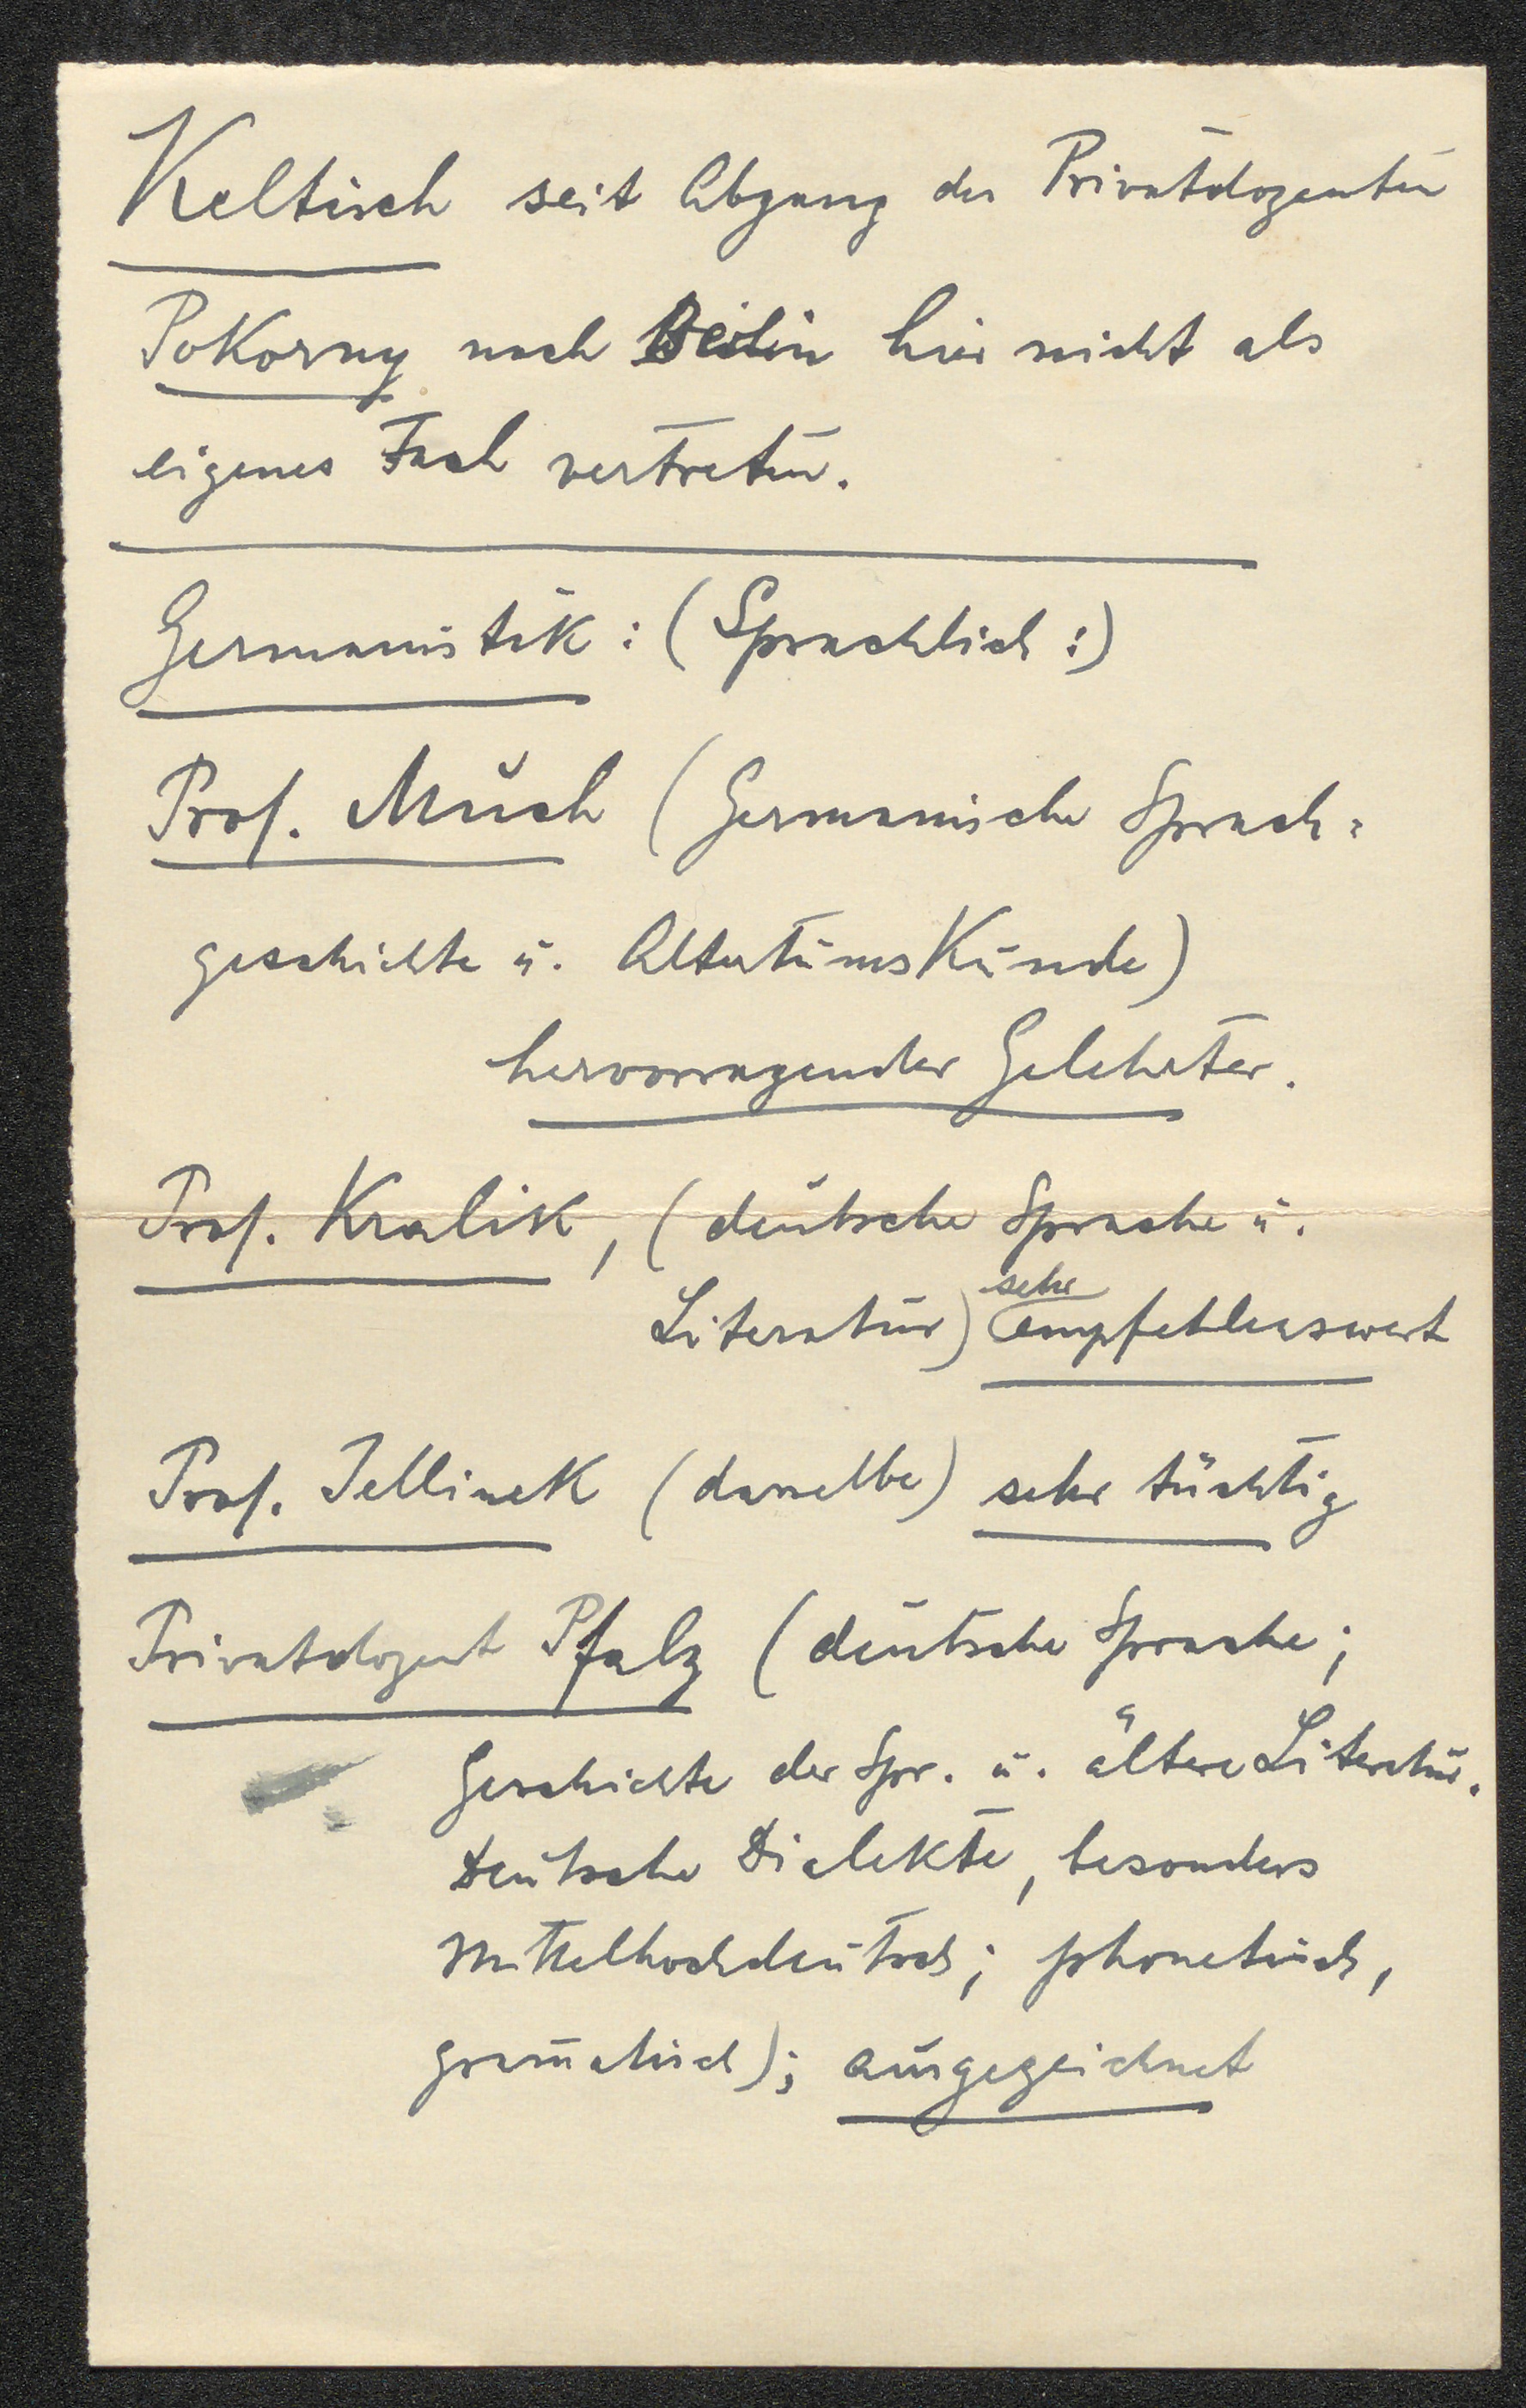 Keltisch seit Abgang des Privatdozenten
Pokorny nach Berlin hier nicht als
eigenes Fach vertreten.
Germanistik: (Sprachlich:)
Prof. Much (Germanische Sprach=
geschichte u. Altertumskunde)
hervorragender Gelehrter.
Prof. Kralik, (deutsche Sprache u.
Literatur) sehr empfehlenswert
Prof. Jellinek (dasselbe) sehr tüchtig
Privatdozent Pfalz (deutsche Sprache;
Geschichte der Spr. u. ältere Literatur.
Deutsche Dialekte, besonders
Mittelhochdeutsch; phonetisch,
gram̅atisch); ausgezeichnet